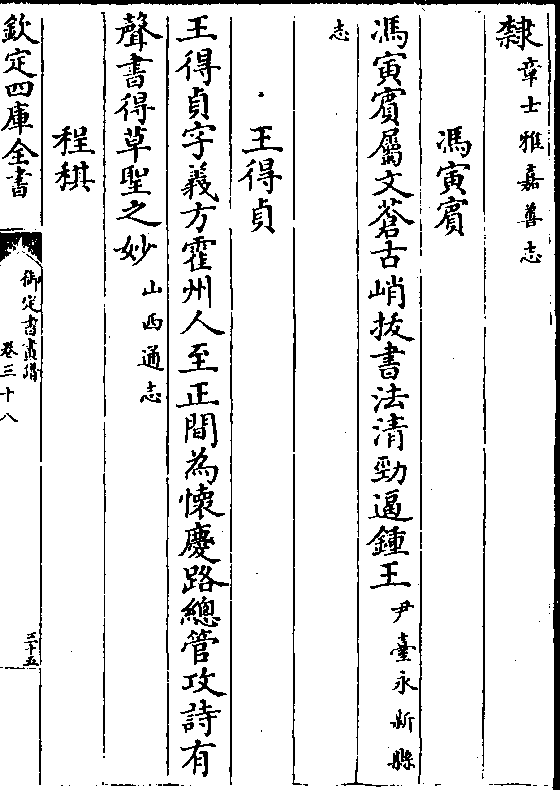 隸章士雅嘉善志
馮寅賓
馮寅賓屬文蒼古峭拔書法清勁逼鍾王尹臺永新縣
志
王得貞
王得貞字義方霍州人至正間為懷慶路總管攻詩有
聲書得草聖之妙山西通志
程棋
欽定四庫全書
御定書畫譜
卷三十八
三十五